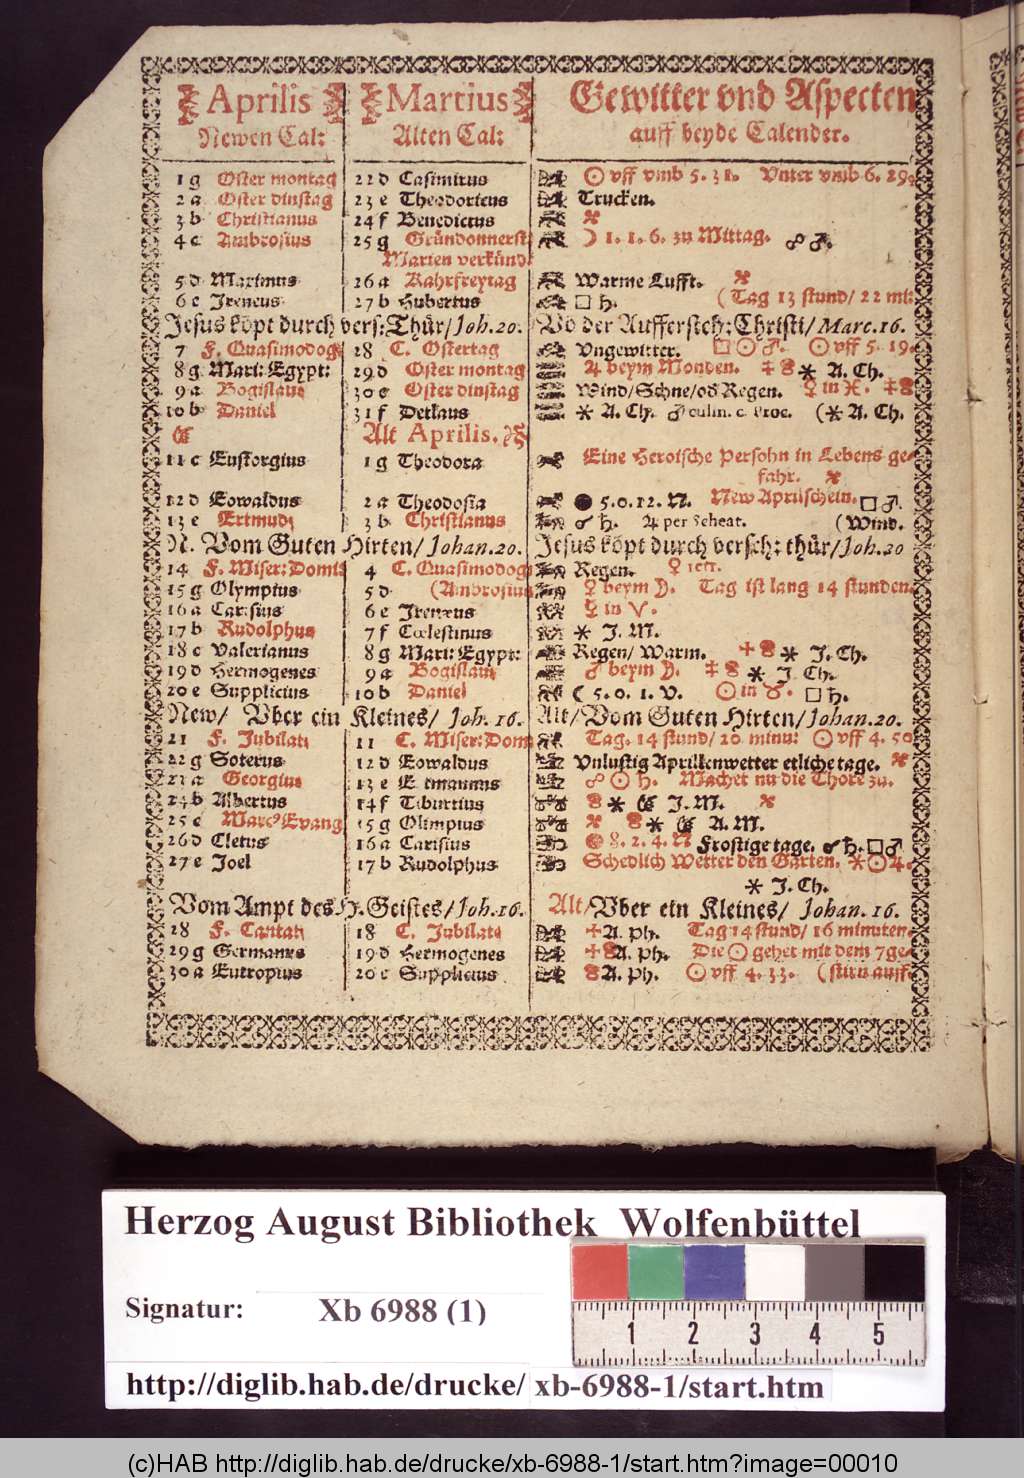 Aprilis Martius Gewitter vnd Aspecten
Newen Cal: Alten Cal: auff beyde Calender.
1 g Oster montag 22 d Casimirus ☉ vff vmb 5. 31. Vnter vmb 6. 29.
2 a Oster dinstag 23 e Theodoricus Trucken.
3 b Christianus 24 f Benedictus
4 c Ambrosius 25 g Gründonnerst ☽ 1. 1. 6. zu Mittag. ☍ ♂.
Marien verkünd:
5 d Maximus 26 a Kahrfreytag Warme Lufft.
6 e Ireneus 27 b Hubertus □ ♄. (Tag 13 stund/ 22 mi:
Jesus köpt durch vers: Thür/ Joh. 20. Vō der Auffersteh: Christi/ Marc. 16.
7 F. Quasimodog 28 C. Ostertag Vngewitter. □ ☉ ♂. ☉ vff 5. 19.
8 g Mari: Egypt: 29 d Oster montag ♃ beym Monden. ⚹ A. Ch.
9 a Bogislaus 30 e Oster dinstag Wind/ Schne/ od Regen. ♀ in ♓.
10 b Daniel 31 f Detlaus ⚹ A. Ch. ♂ culm. c. Proc. (⚹ A. Ch.
Alt Aprilis.
11 c Eustorgius 1 g Theodora Eine Heroische Persohn in Lebens ge-
fahr.
12 d Eowaldus 2 a Theodosia ● 5. 0. 12. N. New Aprilschein. □ ♂.
13 e Ertmudt 3 b Christianus ☌ ♄. ♃ per Scheat. (Wind.
N. Vom Guten Hirten/ Johan. 20. Jesus köpt durch versch: thür/ Joh. 20
14 F. Miser: Domi: 4 C. Quasimodog Regen. ♀
15 g Olympius 5 d (Ambrosius ♀ beym ☽. Tag ist lang 14 stunden.
16 a Carisius 6 e Ireneus in ♈.
17 b Rudolphus 7 f Cœlestinus ⚹ J. M.
18 c Valerianus 8 g Mari: Egypt: Regen/ Warm. ⚹ J. Ch.
19 d Hermogenes 9 a Bogislaus ♂ beym ☽. ⚹ J. Ch.
20 e Supplicius 10 b Daniel ☾ 5. 0. 1. V. ☉ in ♉. □ ♄.
New/ Vber ein Kleines/ Joh. 16. Alt/ Vom Guten Hirten/ Johan. 20.
21 F. Jubilate 11 C. Miser: Dom Tag. 14 stund/ 20 minu: ☉ vff 4. 50
22 g Soterus 12 d Eowaldus Vnlustig Aprillenwetter etliche tage.
23 a Georgius 13 e Ertmannus ☍ ☉ ♄. Machet nu die Thore zu.
24 b Albertus 14 f Tiburtius ⚹ J. M.
25 c Marcꝰ Evang 15 g Olimpius ⚹ A. M.
26 d Cletus 16 a Carisius 8. 2. 4. N Frostige tage. ☌ ♄. □ ♂
27 e Joel 17 b Rudolphus Schedlich Wetter den Gärten. ⚹ ☉ ♃.
⚹ J. Ch.
Vom Ampt des H. Geistes/ Joh. 16. Alt/ Vber ein Kleines/ Johan. 16.
28 F. Cantate 18 C. Jubilate A. Ph. Tag 14 stund/ 16 minuten
29 g Germanus 19 d Hermogenes A. Ph. Die ☉ gehet mit dem 7ge-
30 a Eutropius 20 e Supplicius A. Ph. ☉ vff 4. 33. (stirn auff.
Herzog August Bibliothek Wolfenbüttel
Signatur: Xb 6988 (1)
1 2 3 4 5
http://diglib.hab.de/drucke/ xb-6988-1/start.htm
(c)HAB http://diglib.hab.de/drucke/xb-6988-1/start.htm?image=00010